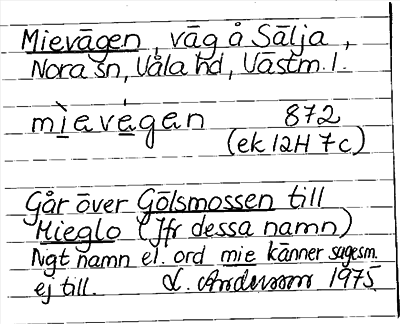 Mievägen, väg å Sälja,
Nora sn, Våla hd, Västm. l.
mìavégan 872
(ek 12H 7c)
Går över Gölsmossen till
Mieglo (Jfr dessa namn)
Ngt namn el. ord mie känner sagesm.
ej till. L. Andersson 1975.